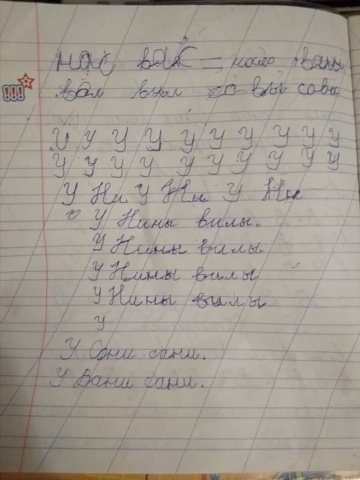 нас вас носо ваны
вол выл со вы сова
У У У У У У У У У У
У У У У У У У У У У
У Ни У Ни У Ни
У Нины вилы.
У Нины вилы
У Нины вилы
У Нины вилы
У
У Сони сани.
У Вани сани.
!!!